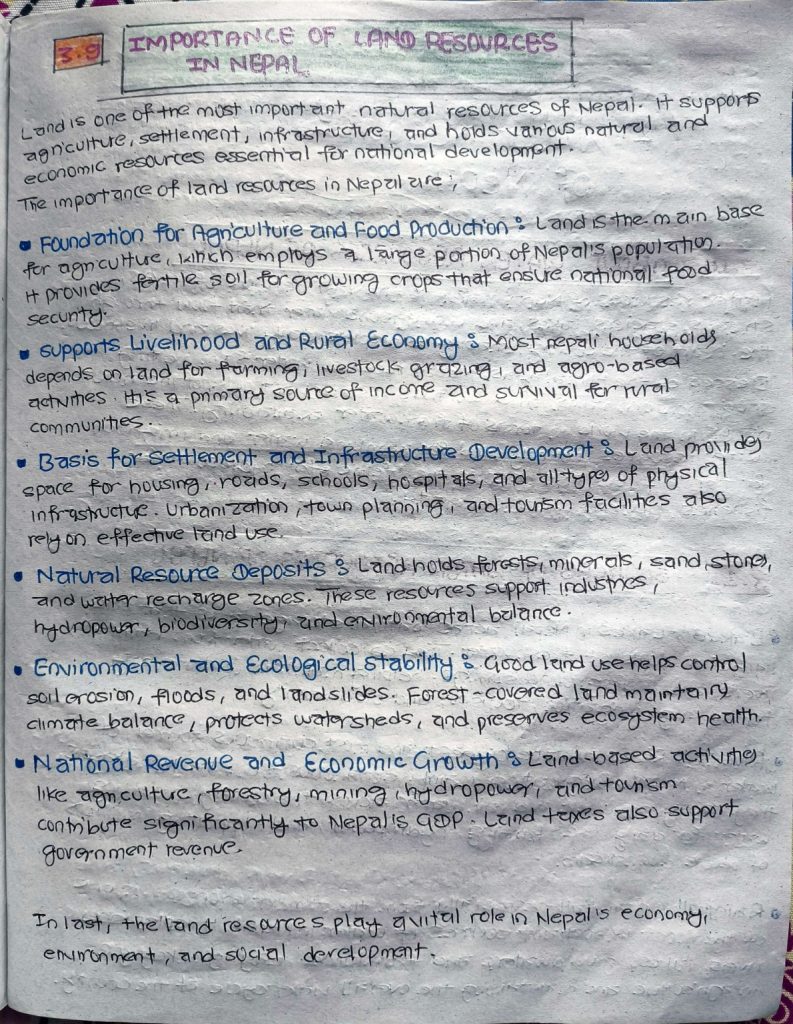 3.9
IMPORTANCE OF LAND RESOURCES
IN NEPAL
Land is one of the most important natural resources of Nepal. It supports
agriculture, settlement, infrastructure, and holds various natural and
economic resources essential for national development.
The importance of land resources in Nepal are;
• Foundation for Agriculture and Food Production : Land is the main base
for agriculture, which employs a large portion of Nepal's population.
It provides fertile soil for growing crops that ensure national food
security.
• supports Livelihood and Rural Economy : Most nepali households
depends on land for farming, livestock grazing, and agro-based
activities. It is a primary source of income and survival for rural
communities.
• Basis for Settlement and Infrastructure Development : Land provides
space for housing, roads, schools, hospitals, and all types of physical
infrastructure. Urbanization, town planning, and tourism facilities also
rely on effective land use.
• Natural Resource Deposits : Land holds forests, minerals, sand, stones,
and water recharge zones. These resources support industries,
hydropower, biodiversity, and environmental balance.
• Environmental and Ecological Stability : Good land use helps control
soil erosion, floods, and landslides. Forest-covered land maintains
climate balance, protects watersheds, and preserves ecosystem health.
• National Revenue and Economic Growth : Land-based activities
like agriculture, forestry, mining, hydropower, and tourism
contribute significantly to Nepal's GDP. Land taxes also support
government revenue.
In last, the land resources play a vital role in Nepal's economy,
environment, and social development.